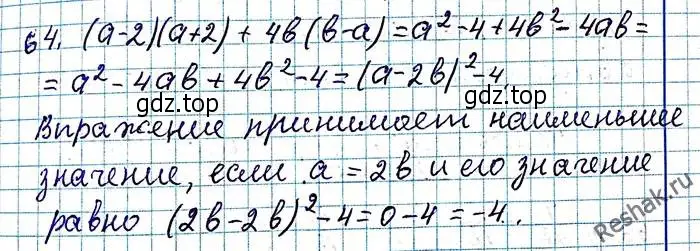 64. (a-2)(a+2) + 4b(b-a) = a² - 4 + 4b² - 4ab =
= a² - 4ab + 4b² - 4 = (a-2b)² - 4
gdz.top gdz.top
Выражение принимает наименьшее
значение, если a = 2b и его значение
gdz.top gdz.top
равно (2b-2b)² - 4 = 0 - 4 = -4.
Reshak.ru